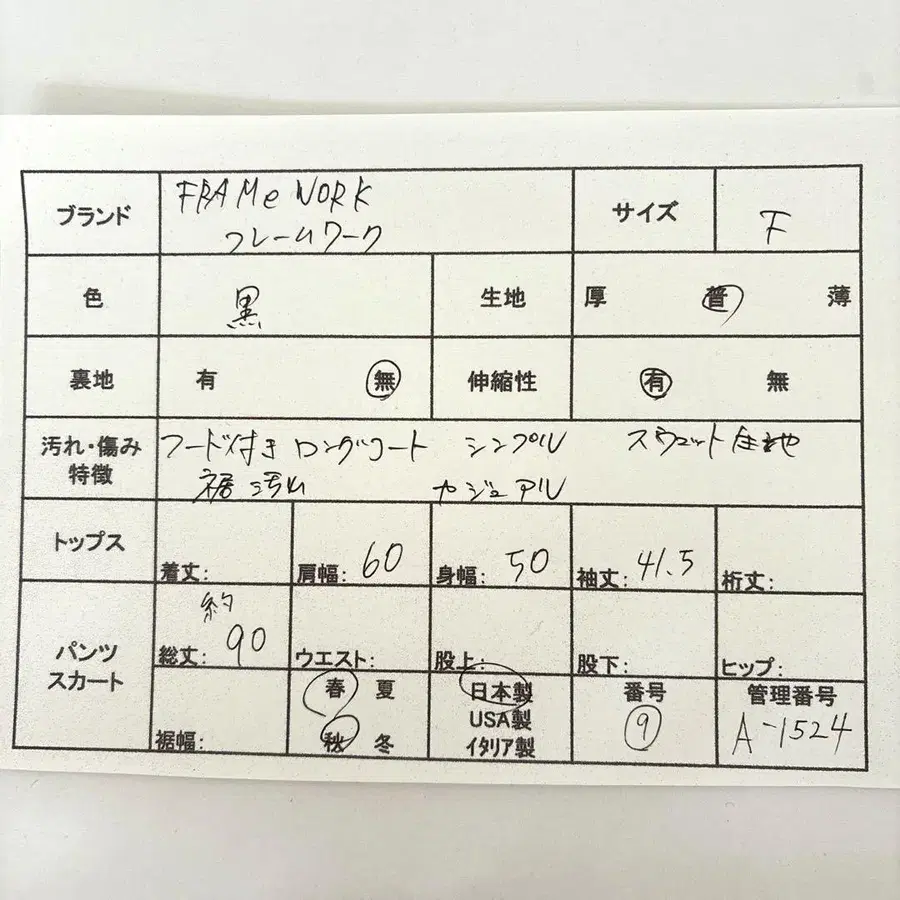 ブランド FRAMe WORK サイズ F
フレームワーク
色 黒 生地 厚 普 薄
裏地 有 無 伸縮性 有 無
汚れ・傷み フード付き ロングコート シンプル スウェット生地
特徴 裾 汚れ カジュアル
トップス 着丈: 肩幅: 60 身幅: 50 袖丈: 41.5 裄丈:
パンツ 総丈: 約90 ウエスト: 股上: 股下: ヒップ:
スカート 裾幅: 春 夏 日本製 番号 管理番号
USA製 9 A-1524
秋 冬 イタリア製